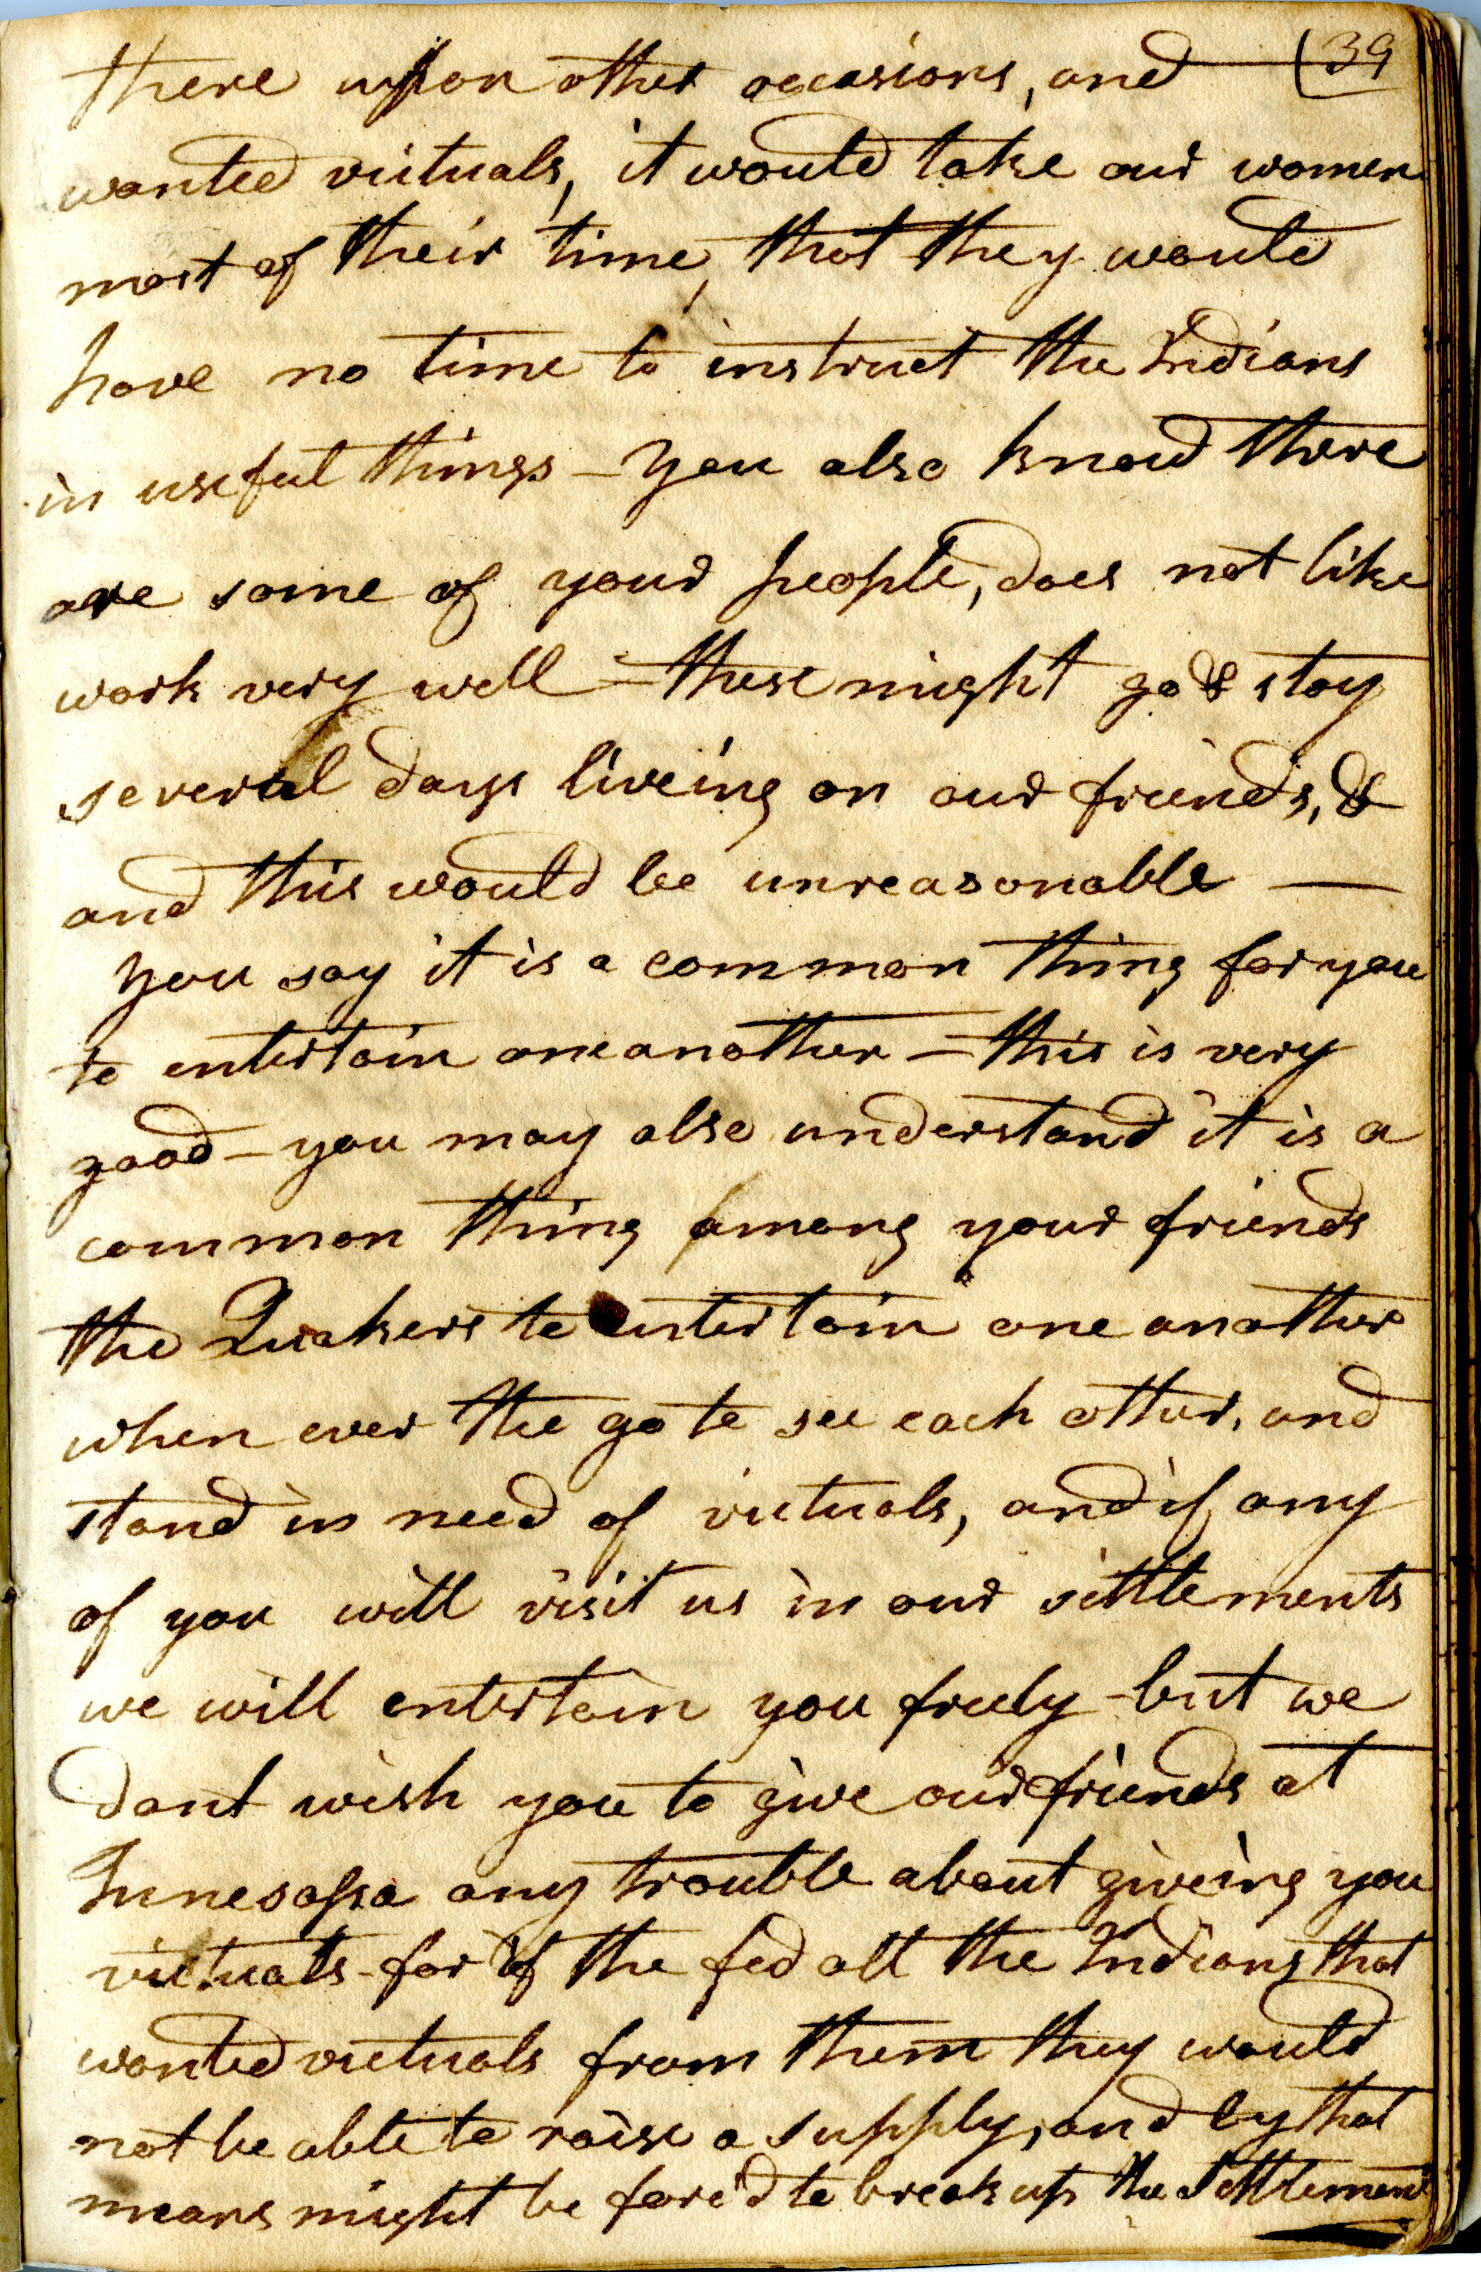 there upon other occasions, and (39
wanted victuals, it would take our women
most of their time, that they would
have no time to instruct the Indians
in useful things - You also know there
are some of your people, does not like
work very well - these might go & stay
several days liveing on our friends, &
and this would be unreasonable —
You say it is a common thing for you
to entertain one another - this is very
good - you may also understand it is a
common thing among your friends
the Quakers to entertain one another
when ever the go to see each other, and
stand in need of victuals, and if any
of you will visit us in our settlements
we will entertain you freely - but we
dont wish you to give our friends at
Tunesassa any trouble about giveing you
victuals - for if the fed all the Indians that
wanted victuals from them they would
not be able to raise a supply, and by that
means might be forc'd to break up the Settlement